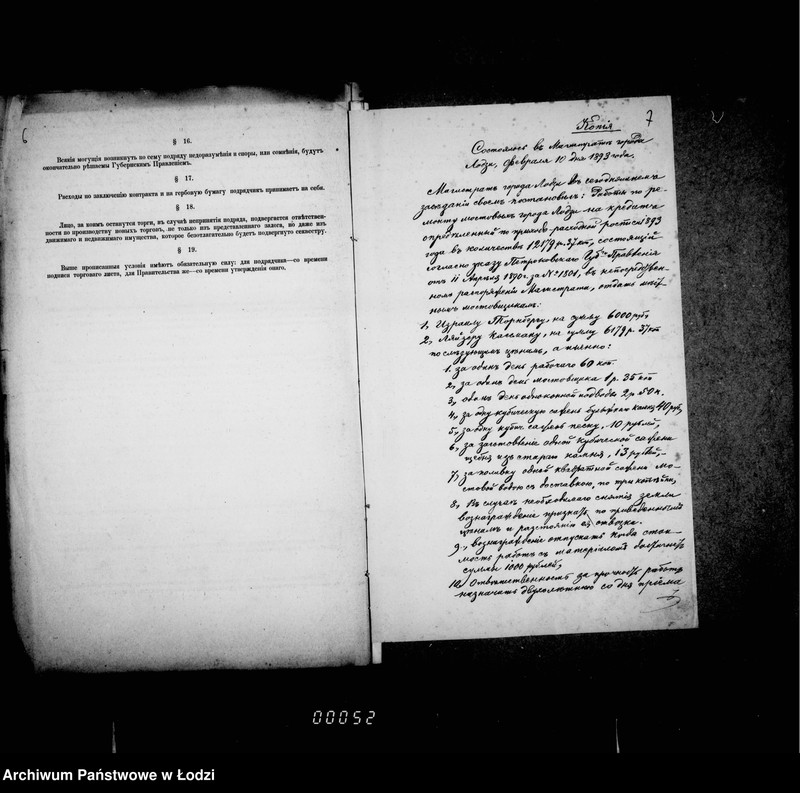 6
§ 16.
Всякія могущія возникнуть по сему подряду недоразумѣнія и споры, или сомнѣнія, будутъ
окончательно рѣшаемы Губернскимъ Правленіемъ.
§ 17.
Расходы по заключенію контракта и на гербовую бумагу подрядчикъ принимаетъ на себя.
§ 18.
Лицо, за коимъ останутся торги, въ случаѣ непринятія подряда, подвергается отвѣтствен-
ности по производству новыхъ торговъ, не только изъ представленнаго залога, но даже изъ
движимаго и недвижимаго имущества, которое безотлагательно будетъ подвергнуто секвестру.
§ 19.
Выше прописанныя условія имѣютъ обязательную силу: для подрядчика—со времени
подписи торговаго листа, для Правительства же—со времени утвержденія онаго.
7
Копія
Состоялось въ Магистратѣ города
Лодзи, февраля 10 дня 1893 года.
Магистратъ города Лодзи въ сегодняшнемъ
засѣданіи своемъ постановилъ: Работы по ре-
монту мостовыхъ города Лодзи на кредитъ
опредѣленный по росписи 1893
года въ количествѣ 12179 р. 37 коп., состоящій
согласно указу Петроковскаго Губ. Правленія
отъ 11 Апрѣля 1890 г. за № 1801, въ непосредствен-
номъ распоряженіи Магистрата, отдать мѣст-
нымъ мостовщикамъ:
1, Израилю на сумму 6000 руб,
2, Лейзеру на сумму 6179 р. 37 коп
по слѣдующимъ цѣнамъ, а именно:
1. за одинъ день рабочаго 60 коп.
2, за одинъ день мостовщика 1 р. 35 коп
3, одинъ день одноконной подводы 2 р 50 к.
4, за одну кубическую сажень камня 40 руб,
5, за одну кубич. сажень песку, 10 рублей,
6, за заготовленіе одной кубической сажени
щебня изъ стараго камня, 13 рублей,
7, за поливку одной квадратной сажени мо-
стовой водою съ доставкою, по три копѣйки,
8, Въ случаѣ необходимаго снятія земли
вознагражденіе признать по приведеннымъ
цѣнамъ и разстоянію ея отвозки.
9, вознагражденіе отпускать когда стои-
мость работъ съ матеріаломъ достигнетъ
суммы 1000 рублей,
10, Отвѣтственность за прочность работъ
назначить двухлѣтнюю со дня пріема
00052
Archiwum Państwowe w Łodzi